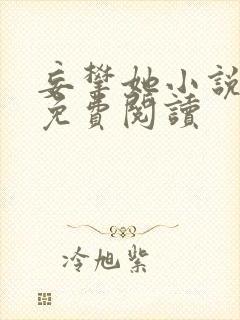 妄攀她小說
免費閱讀
冷旭紫